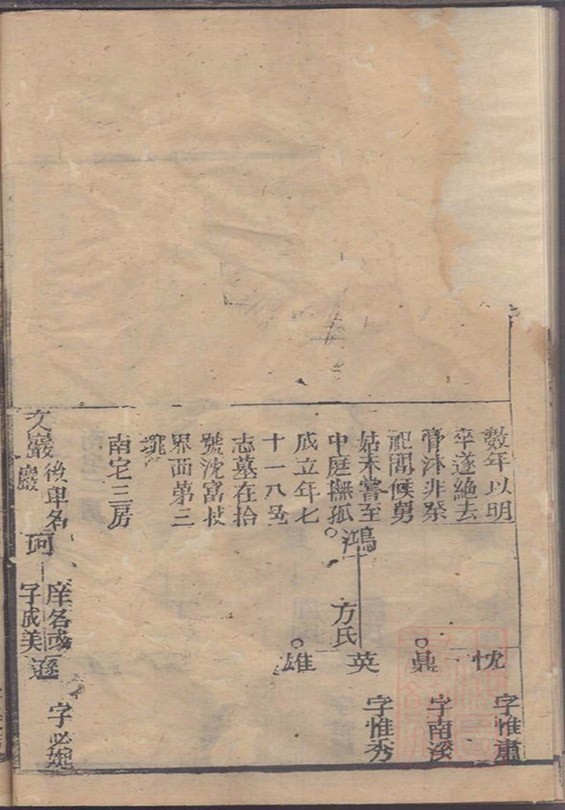 數年以明
卒遂絶去
膏沐非祭
祀問候舅
姑未嘗至
中庭撫孤
成立年七
十一入 
志墓在拾
號沈富
界西第三
南宅三房
鴻
方氏
忱
字惟肅
鼎
字南溪
英
字惟秀
雄
文巖
後単名
巖
珂
庠名或
字成美
遜
字